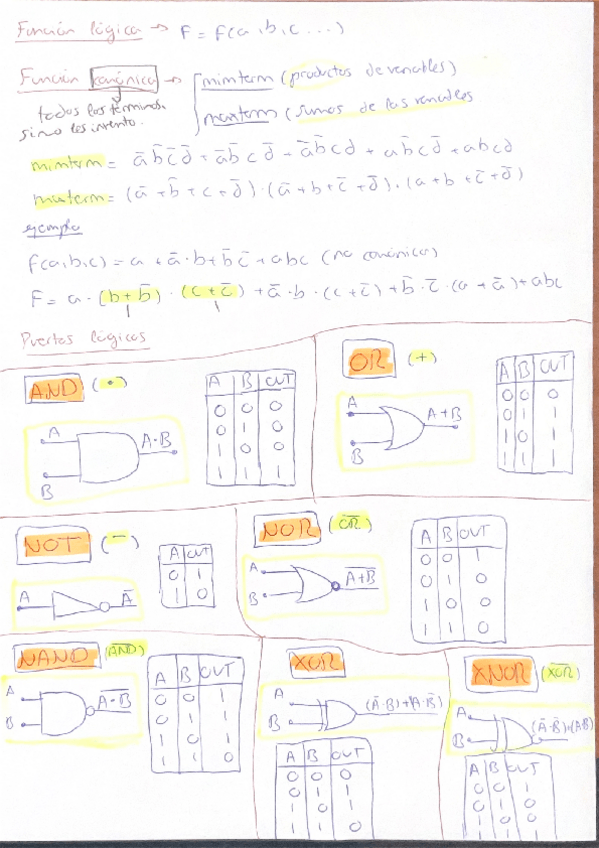 Función lógica → F = F(a,b,c...)
Función canónica → minterm (productos de variables)
todos los términos. maxterm (sumas de las variables
sino les invento.
minterm = a̅b̅c̅d̅ + a̅b̅cd̅ + a̅b̅cd + ab̅cd̅ + abcd
maxterm = (a̅+b̅+c+d̅)·(a̅+b+c̅+d̅)·(a+b+c̅+d̅)
ejemplo
f(a,b,c) = a + a̅·b + b̅c̅ + abc (no canónicas)
F = a·(b+b̅)·(c+c̅) + a̅·b·(c+c̅) + b̅·c̅·(a+a̅) + abc
1 1
Puertas lógicas
AND (•)
A B OUT
0 0 0
0 1 0
1 0 0
1 1 1
A
B
A·B
OR (+)
A B OUT
0 0 0
0 1 1
1 0 1
1 1 1
A
B
A+B
NOT (—)
A OUT
0 1
1 0
A
A̅
NOR (O̅R̅)
A B OUT
0 0 1
0 1 0
1 0 0
1 1 0
A
B
A̅+̅B̅
NAND (A̅N̅D̅)
A B OUT
0 0 1
0 1 1
1 0 1
1 1 0
A
B
A̅·̅B̅
XOR
A
B
(A̅·B)+(A·B̅)
A B OUT
0 0 0
0 1 1
1 0 1
1 1 0
XNOR (X̅O̅R̅)
A
B
(A̅·B̅)+(AB)
A B OUT
0 0 1
0 1 0
1 0 0
1 1 1